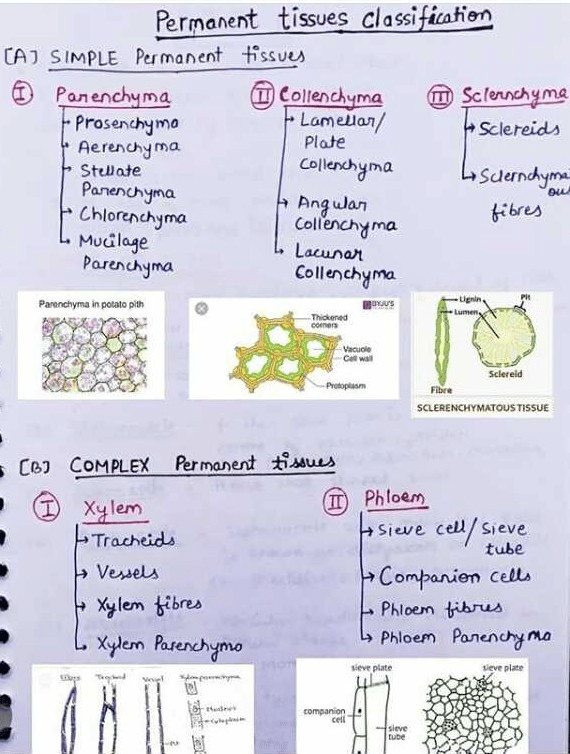 Permanent tissues classification
[A] SIMPLE Permanent tissues
I Parenchyma
Prosenchyma
Aerenchyma
Stellate
Parenchyma
Chlorenchyma
Mucilage
Parenchyma
II Collenchyma
Lamellar/
Plate
Collenchyma
Angular
Collenchyma
Lacunar
Collenchyma
III Sclernchyma
Sclereids
Sclernchyma
ous
fibres
Parenchyma in potato pith
BYJU'S
Thickened
corners
Vacuole
Cell wall
Protoplasm
Lignin
Lumen
Pit
Sclereid
Fibre
SCLERENCHYMATOUS TISSUE
[B] COMPLEX Permanent tissues
I Xylem
Tracheids
Vessels
Xylem fibres
Xylem Parenchyma
II Phloem
Sieve cell/Sieve
tube
Companion cells
Phloem fibres
Phloem Parenchyma
Fibre Tracheid Vessel Xylem parenchyma
Nucleus
Cytoplasm
Pit
sieve plate
companion
cell
sieve
tube
sieve plate